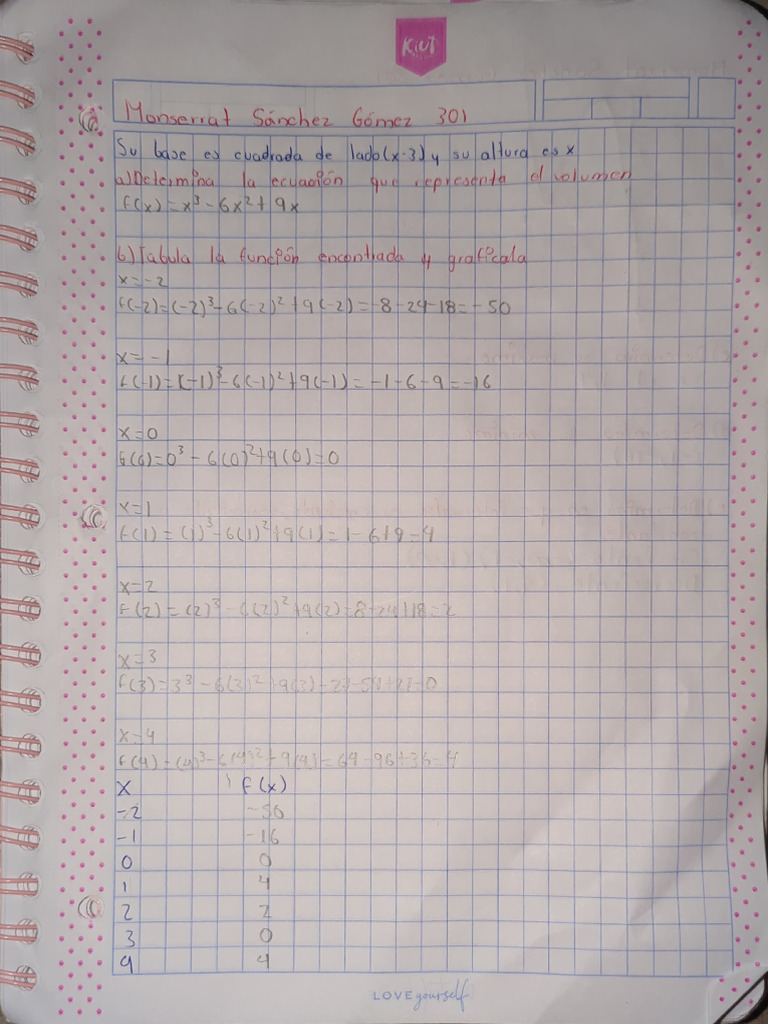 KIUT
Monserrat Sánchez Gómez 301
Su base es cuadrada de lado (x-3) y su altura es x
a) Determina la ecuación que representa el volumen
f(x) = x³ - 6x² + 9x
b) Tabula la función encontrada y graficala
x = -2
f(-2) = (-2)³ - 6(-2)² + 9(-2) = -8 - 24 - 18 = -50
x = -1
f(-1) = (-1)³ - 6(-1)² + 9(-1) = -1 - 6 - 9 = -16
x = 0
f(0) = 0³ - 6(0)² + 9(0) = 0
x = 1
f(1) = (1)³ - 6(1)² + 9(1) = 1 - 6 + 9 = 4
x = 2
f(2) = (2)³ - 6(2)² + 9(2) = 8 - 24 + 18 = 2
x = 3
f(3) = 3³ - 6(3)² + 9(3) = 27 - 54 + 27 = 0
x = 4
f(4) = (4)³ - 6(4)² + 9(4) = 64 - 96 + 36 = 4
x f(x)
-2 -50
-1 -16
0 0
1 4
2 2
3 0
4 4
LOVE yourself